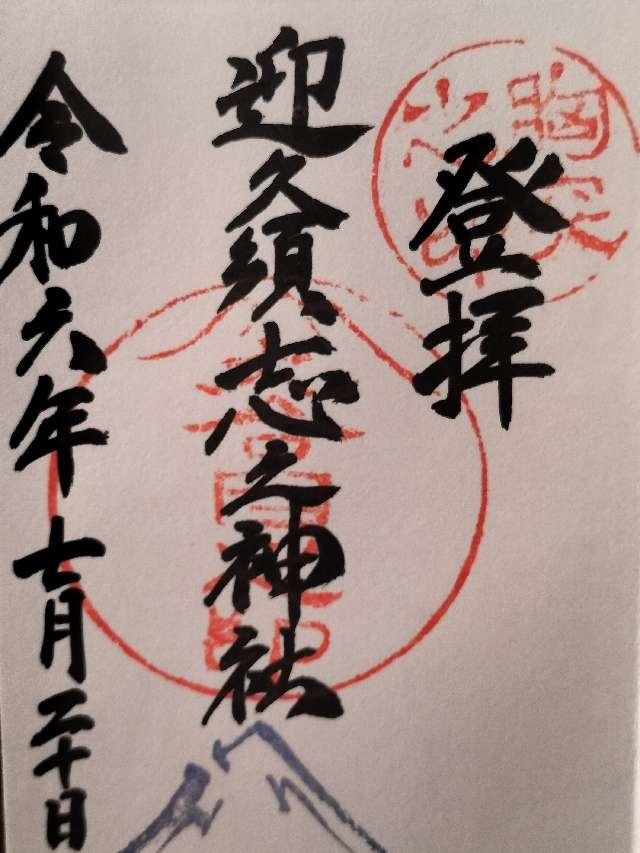 登拝
迎久須志之神社
令和六年七月二十日